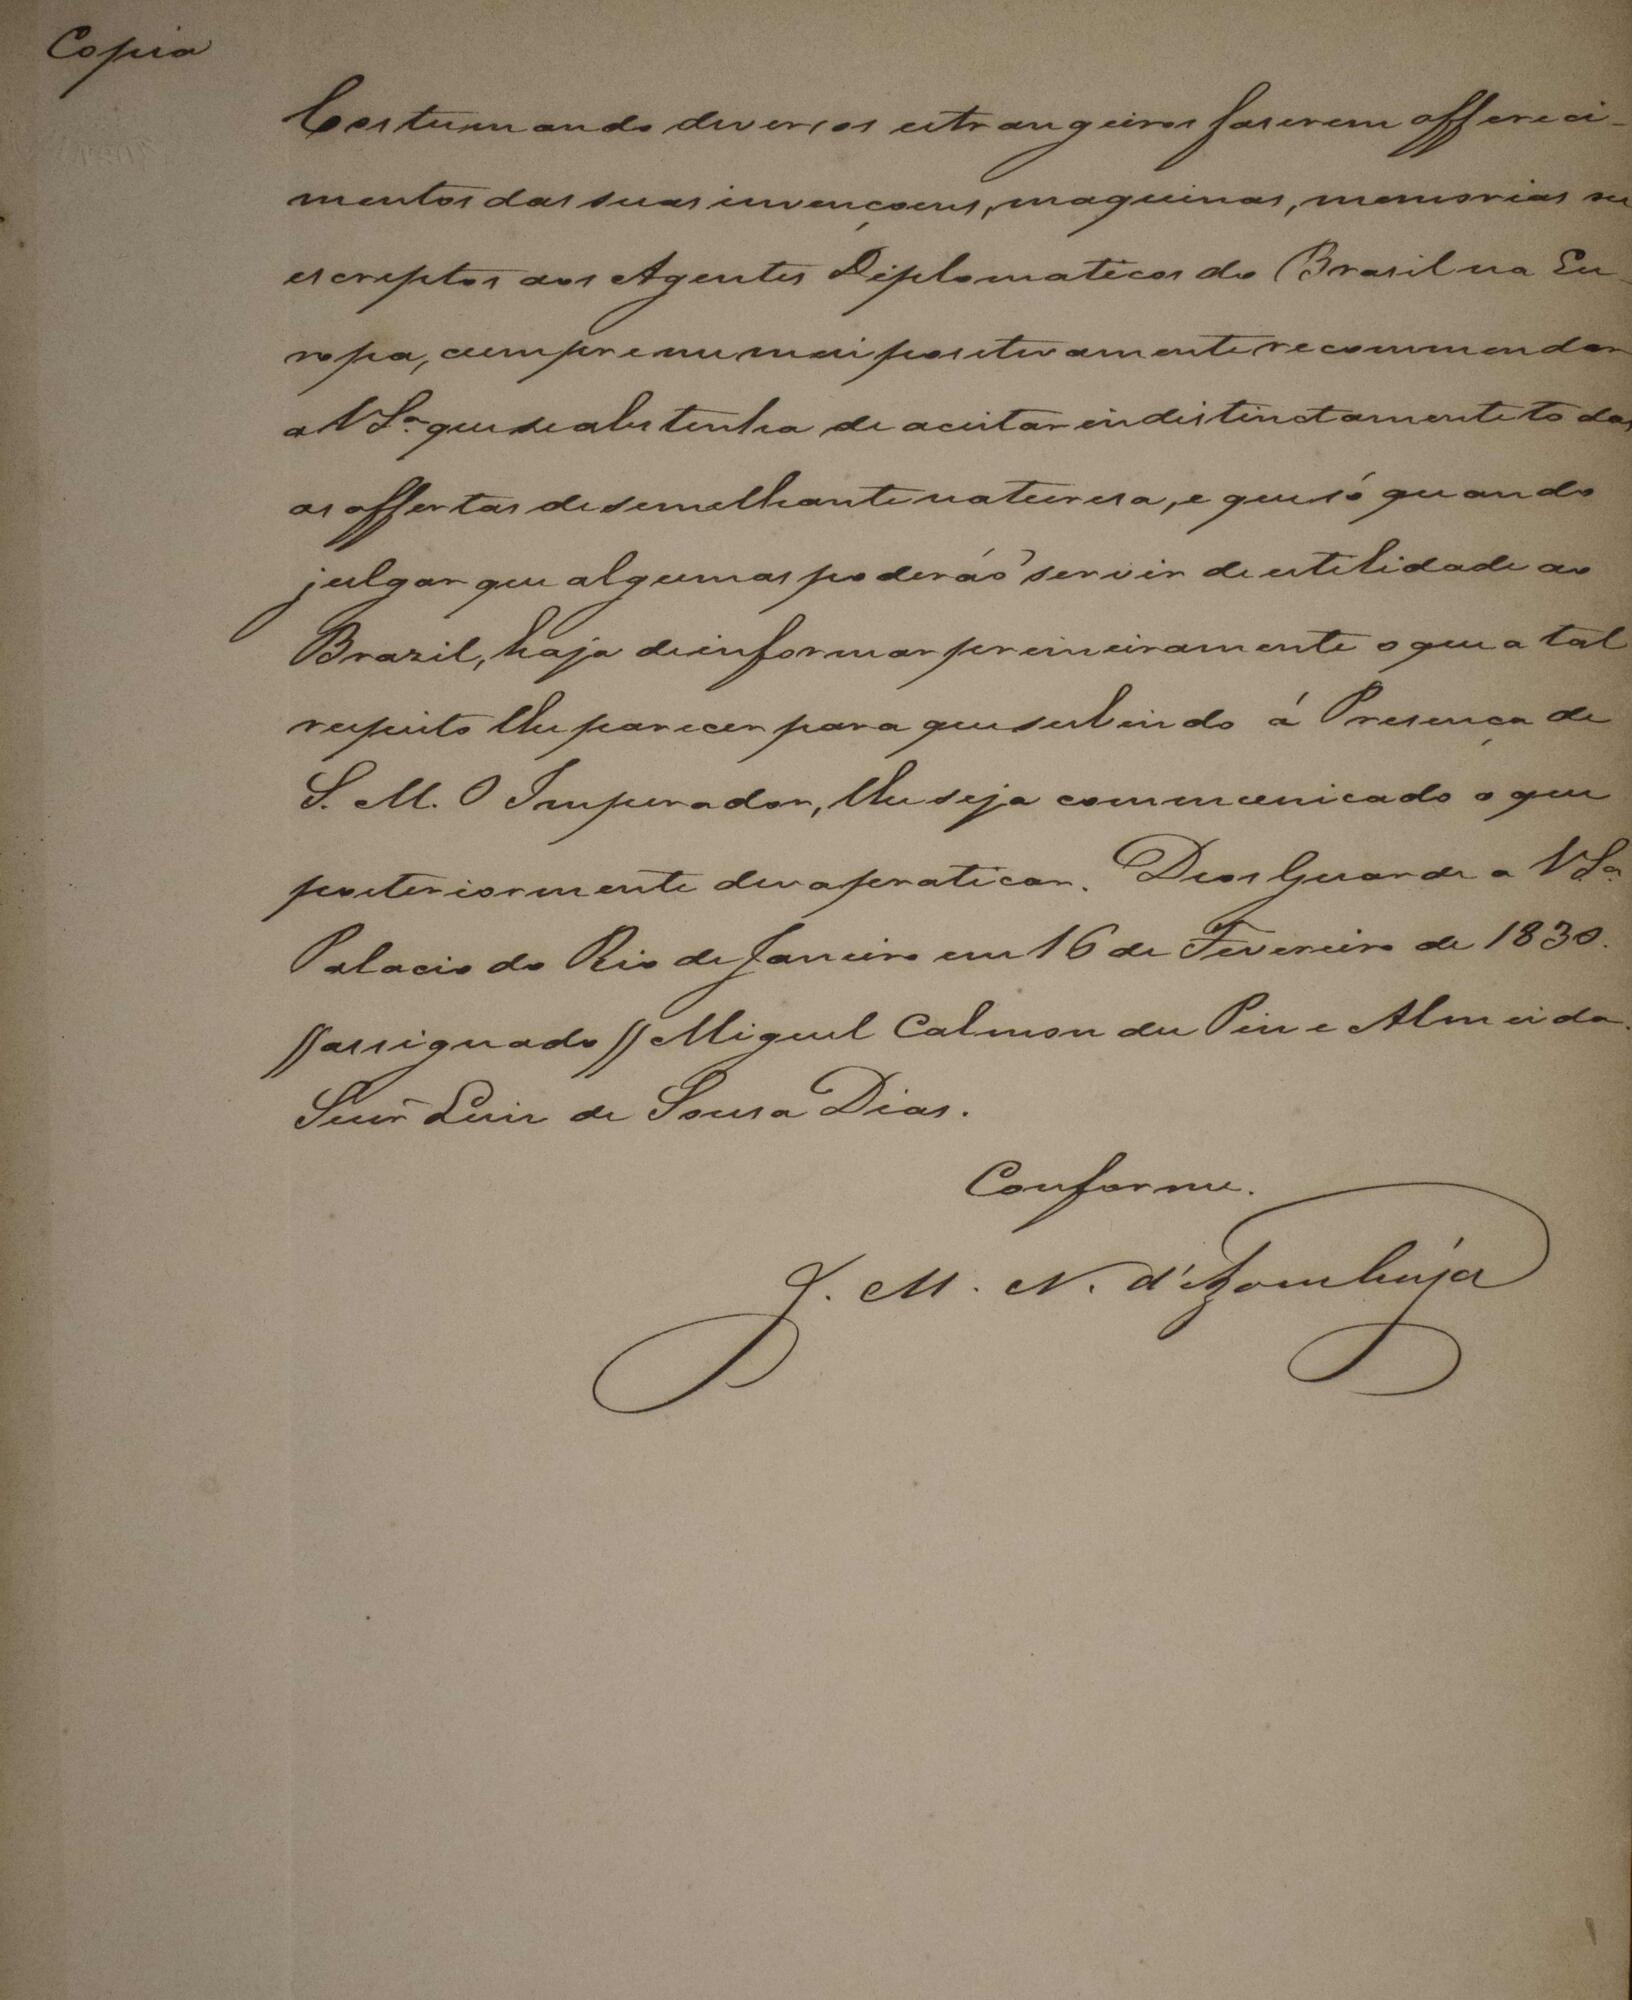 Copia
Costumando diversos estrangeiros faserem offereci-
mentos das suas invençoens, maquinas, memorias ou
escriptos aos Agentes Diplomaticos do Brasil na Eu-
ropa, cumpre-me mui positivamente recommendar
a VSª que se abstenha de aceitar indistinctamente todas
as offertas de semelhante naturesa, e que só quando
julgar que algumas poderáõ servir de utilidade ao
Brazil, haja de informar primeiramente o que a tal
respeito lhe parecer para que subindo á Presença de
S. M. O Imperador, lhe seja communicado o que
posteriormente deva praticar. Deos Guarde a VSª
Palacio do Rio de Janeiro em 16 de Fevereiro de 1830.
//assignado// Miguel Calmon du Pin e Almeida.
Senr Luiz de Sousa Dias.
Conforme.
J. M. N. d'Azambuja